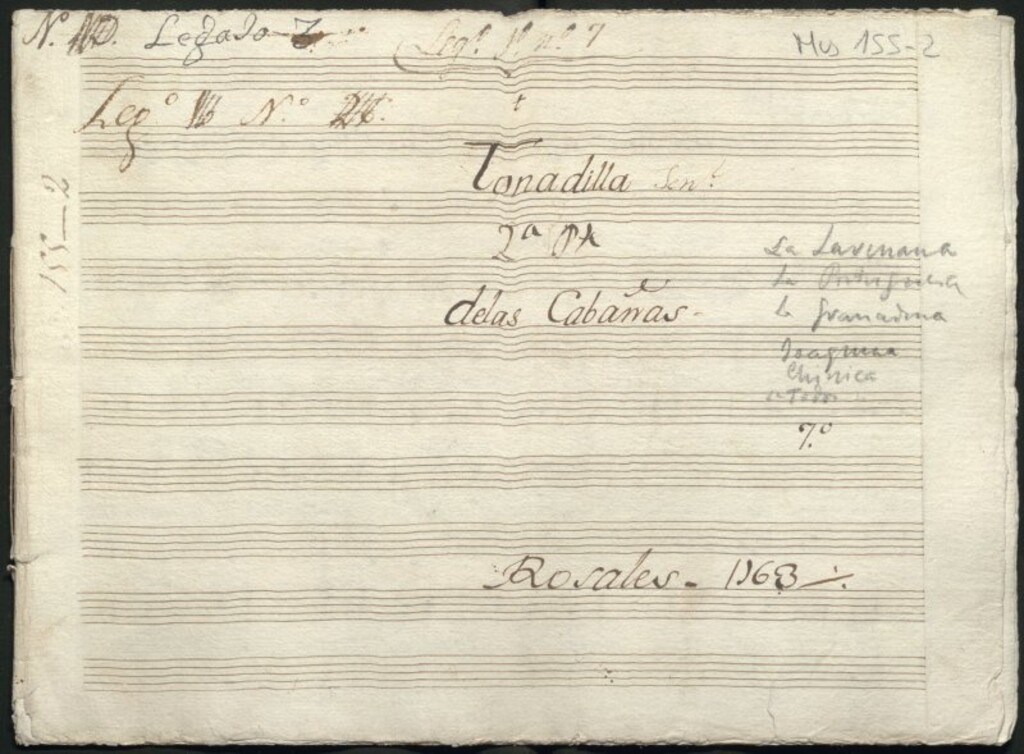 N.º Legado 7
Leg.º 1º nº 7
Mus 155-2
Leg.º N.º
155-2
Tonadilla Sen.ª
2ª Pte
delas Cabañas.
La Lavenana
la Portuguesa
la granadina
Joaquina
Chinica
7.º
Rosales. 1768